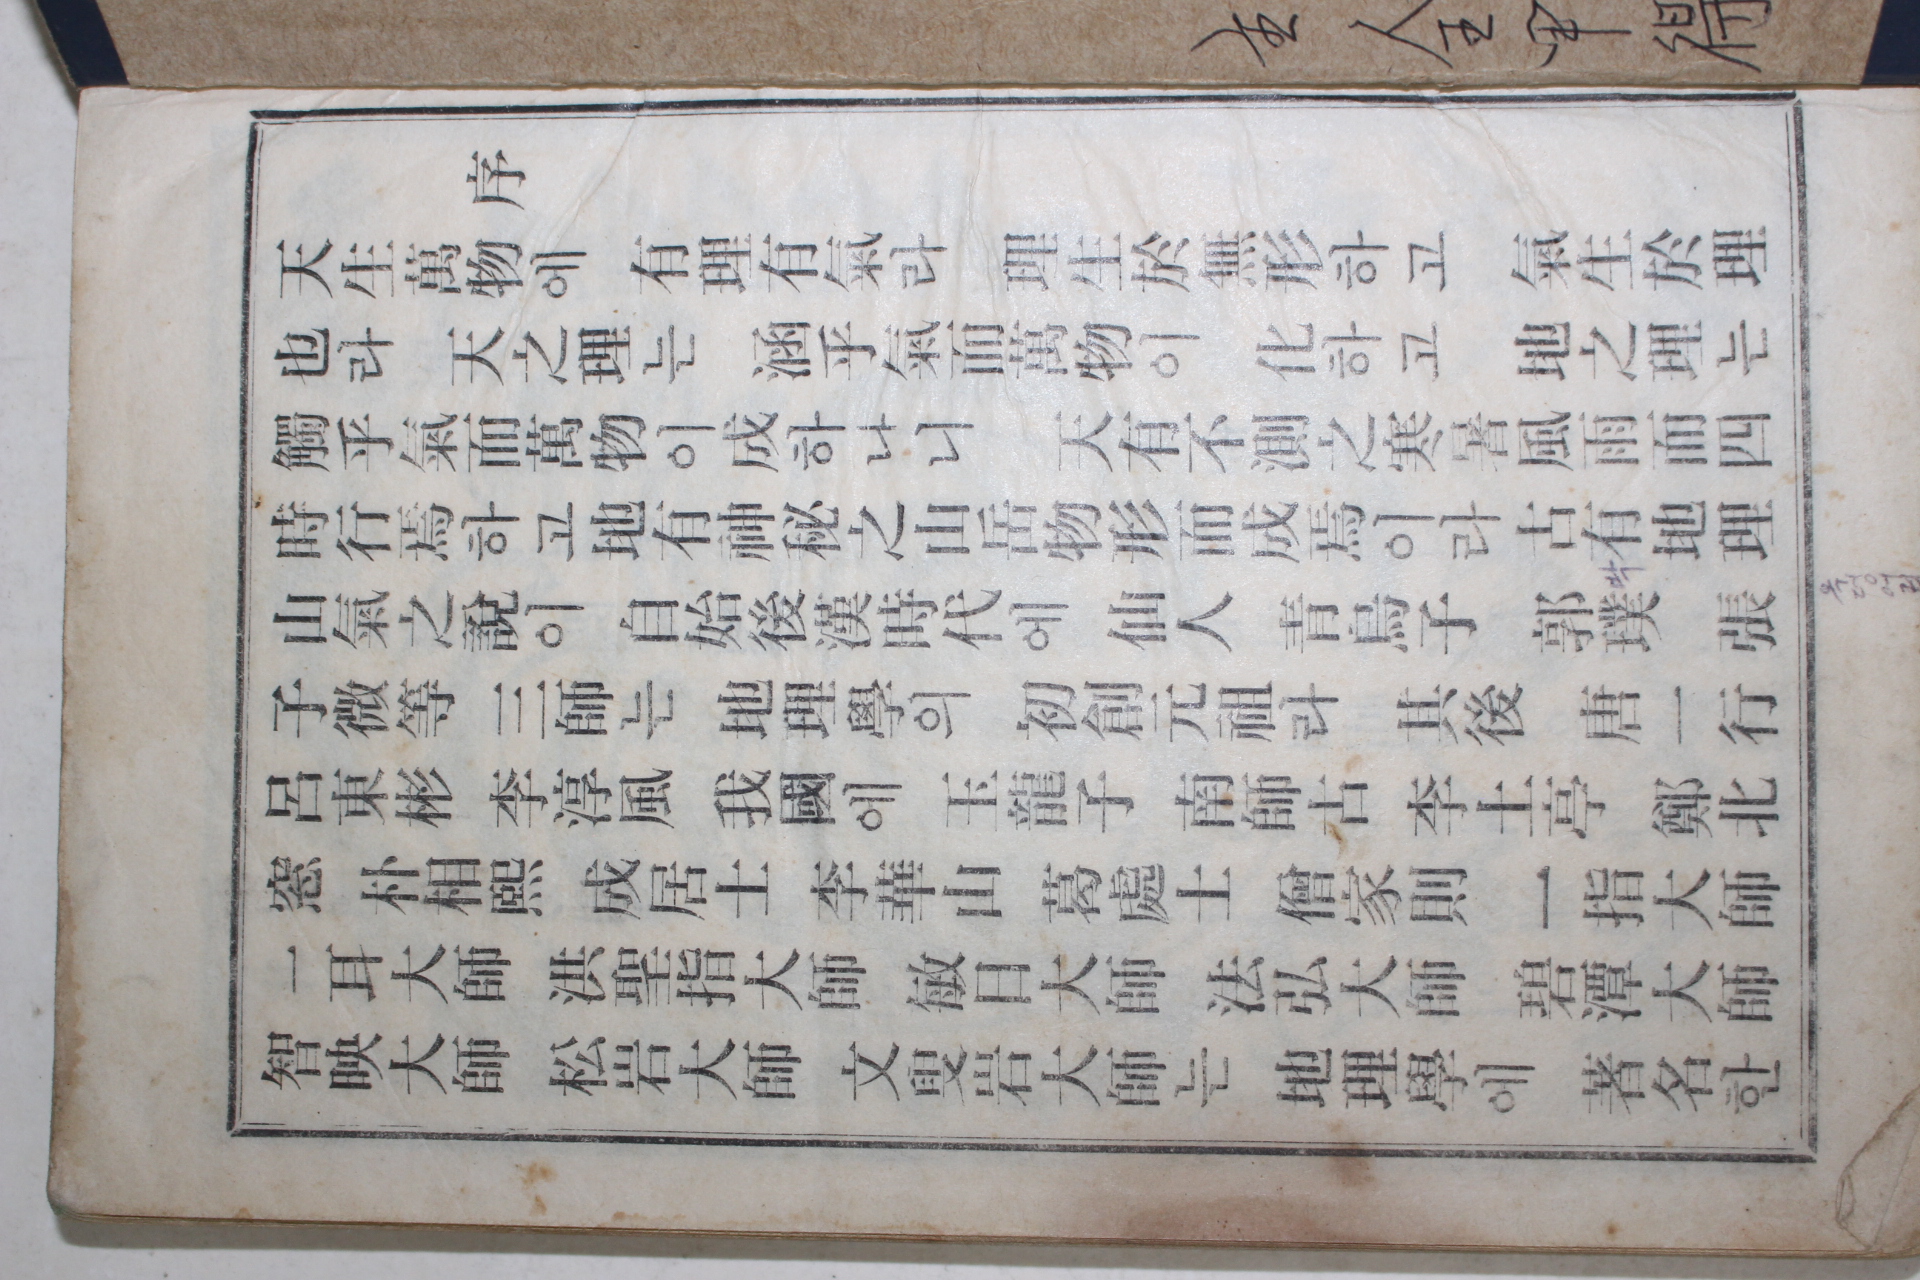 序
天生萬物에 有理有氣라 理生於無形하고 氣生於理
也라 天之理는 涵乎氣而萬物이 化하고 地之理는
觸乎氣而萬物이成하나니 天有不測之寒暑風雨而四
時行焉하고地有神秘之山岳物形而成焉이라古有地理
山氣之說이 自始後漢時代에 仙人 靑烏子 郭璞 張
박
子微等 三師는 地理學의 初創元祖라 其後 唐一行
呂東彬 李淳風 我國에 玉龍子 南師古 李土亭 鄭北
窓 朴相熙 成居士 李華山 葛處士 僧家則 一指大師
一耳大師 洪聖指大師 敏日大師 法弘大師 碧潭大師
智映大師 松岩大師 文叟岩大師는 地理學에 著名한